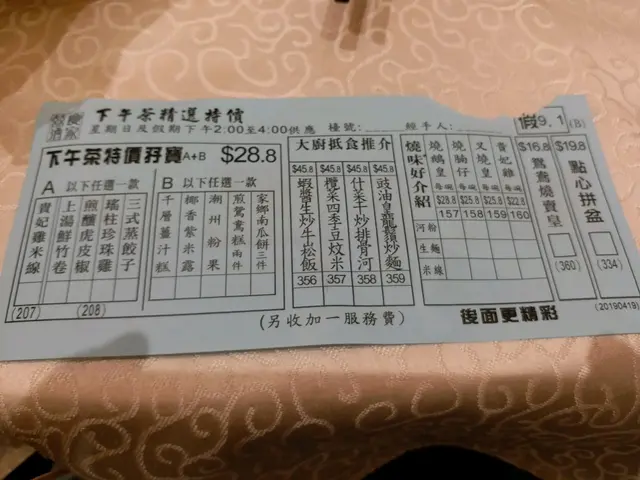 下午茶精選特價
星期日及假期下午2:00至4:00供應 檯號:
經手人:
假9.1(B)
下午茶特價孖寶 A+B $28.8
A 以下任選一款
貴妃雞米線
上湯鮮竹卷
煎釀虎皮椒
瑤柱珍珠雞
三式蒸餃子
(207)
(208)
B 以下任選一款
千層薑汁糕
椰香紫米露
潮州粉果
煎鴛鴦糕兩件
家鄉南瓜餅三件
大廚抵食推介
$45.8 $45.8 $45.8 $45.8
蝦醬生炒牛山松飯
欖菜四季豆炆米
什菜干炒排骨河
豉油皇龍鬚炒麵
356 357 358 359
燒味好介紹
燒鵝皇 每碗 $28.8 157
燒腩仔 每碗 $25.8 158
叉燒皇 每碗 $25.8 159
貴妃雞 每碗 $22.8 160
河粉
生麵
米線
$16.8
鴛鴦燒賣皇
(360)
$19.8
點心拼盆
(334)
(另收加一服務費)
後面更精彩
(20190419)